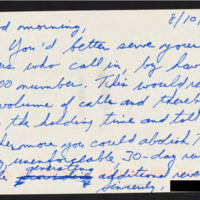 od morning,
8/10/
You'd better serve your
rs who call in, by hav
00 number. This would re
volume of calls and thereb
the holding time and toll
hermore you could abolish t
unenforceable 30-day ru
le generating additional reve
Sincerely,